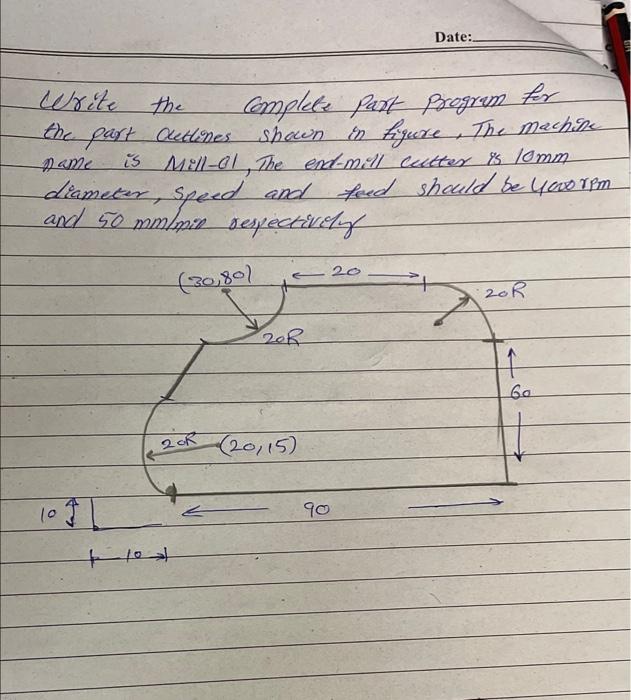 Date:
Write the Complete Part Program for
the part outlines shown in figure, The machine
name is Mill-01, The end-mill cutter is 10mm
diameter, Speed and feed should be 4000 rpm
and 50 mm/min respectively
(30,80) 20
20R
20R
60
20R (20,15)
10 90
10